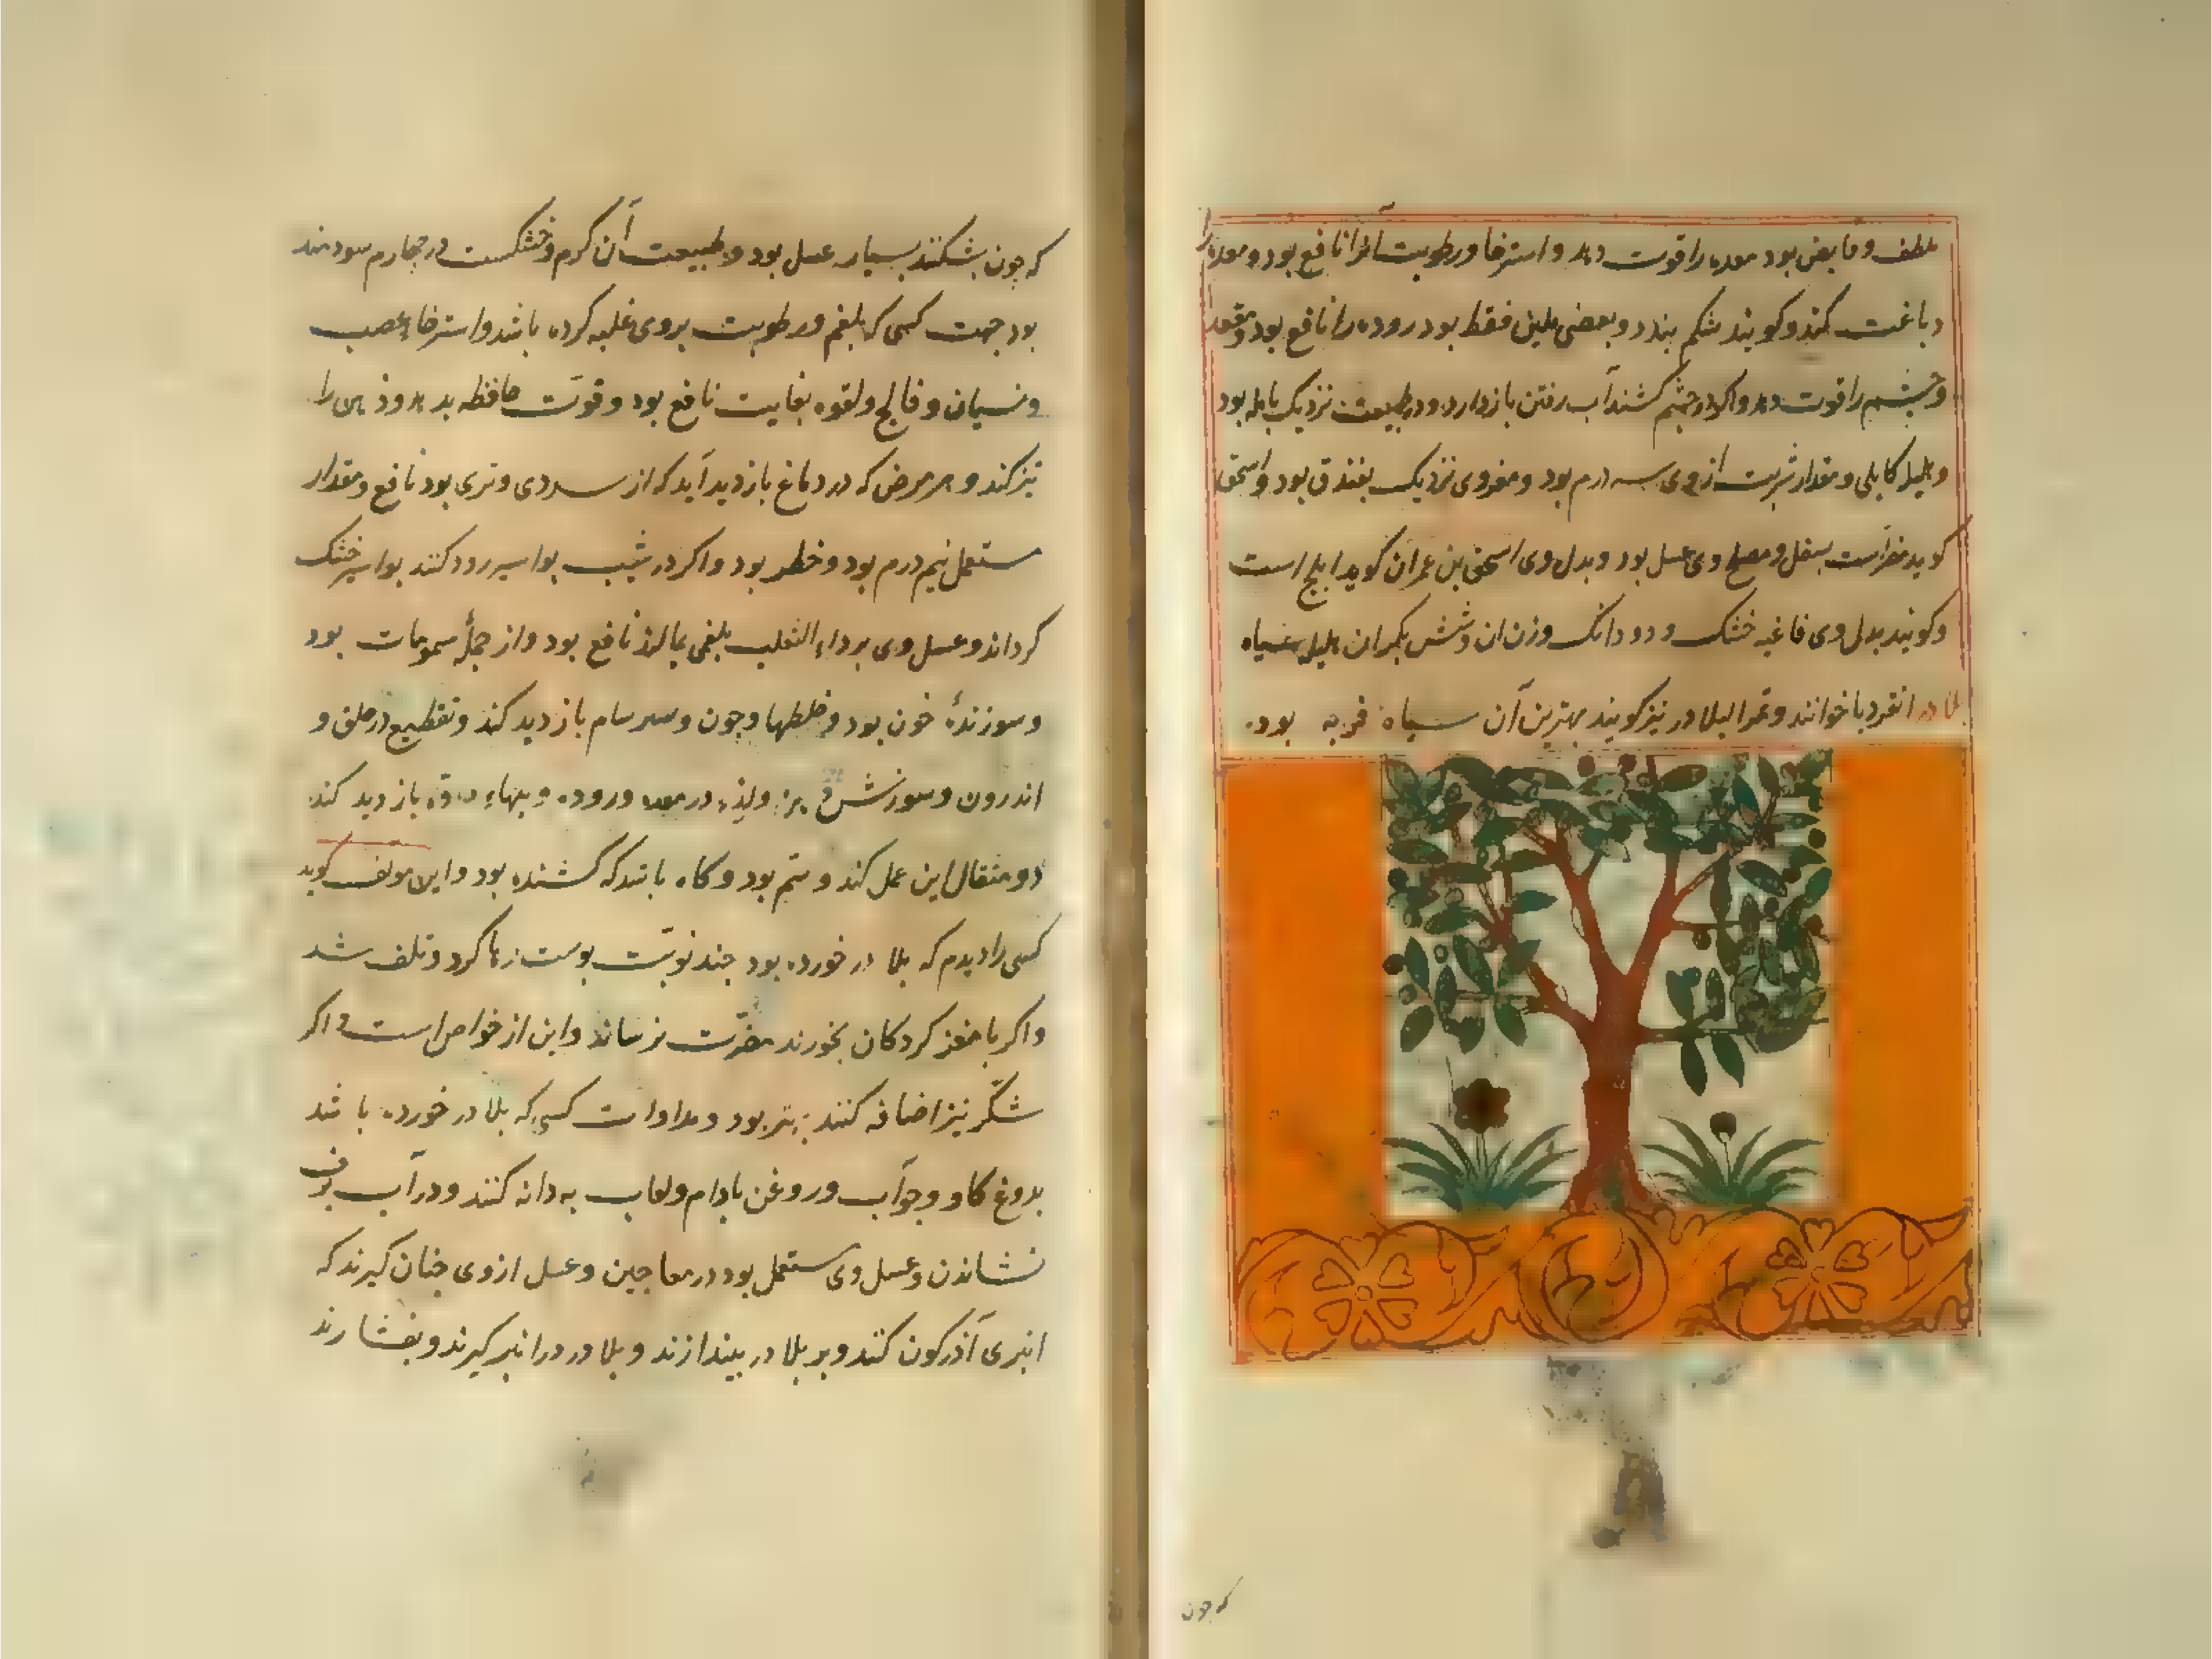 ملطف و قابض بود معده را قوت دهد و استرخا و رطوبت آنرا نافع بود و معده را
دباغت کند و کویند شکم بندد و بعضی ملین فقط بود روده را نافع بود و مقعد
و چشم را قوت دهد و اکر در چشم کشند آب رفتن باز دارد و در طبیعت نزدیک بامله بود
و هلیله کابلی و مقدار شربت از وی سه درم بود و مغز وی نزدیک بفندق بود و اسحق
کوید مضراست بسفل و مصلح وی عسل بود و بدل وی اسحق بن عمران کوید املج است
و کویند بدل وی فاغیه خشک و دو دانک وزن ان و شش یکبران هلیله سیاه
بلادر انقردیا خوانند و ثمر البلادر نیز کویند بهترین آن سیاه فربه بود
که جون
که چون بشکنند بسیار عسل بود و طبیعت آن کرم و خشکست در چهارم سودمند
بود جهت کسی که بلغم و رطوبت بروی غلبه کرده باشد و استرخاء عصب
و نسیان و فالج و لقوه بغایت نافع بود و قوّت حافظه بدهد و ذهن را
تیز کند و هر مرض که در دماغ بازدید آید که از سردی و تری بود نافع و مقدار
مستعمل نیم درم بود و خطر بود و اکر در شیب بواسیر دود کنند بواسیر خشک
کرداند و عسل وی بر داء الثعلب بلغمی بمالند نافع بود و از جملهٔ سمومات بود
و سوزندهٔ خون بود و خلطها و جون و سرسام بازدید کند و تقطیع در حلق و
اندرون و سوزش و لذع در معده و روده و بازدید کند
دو مثقال این عمل کند و ستم بود و کاه باشد که کشنده بود و این مولف کوید
کسی را دیدم که بلادر خورده بود چند نوبّت بوست رها کرد و تلف شد
و اکر با مغز کردکان بخورند مضرّت نرساند و این از خواص است و اکر
شکّر نیز اضافه کنند بهتر بود و مداوات کسی که بلادر خورده باشد
بدوغ کاو و جوآب و روغن بادام و لعاب به دانه کنند و در آب برف
نشاندن و عسل وی مستعمل بود در معاجین و عسل از وی جنان کیرند که
انبری آذرکون کنند و بر بلادر بیندازند و بلادر در انبر کیرند و بفشارند